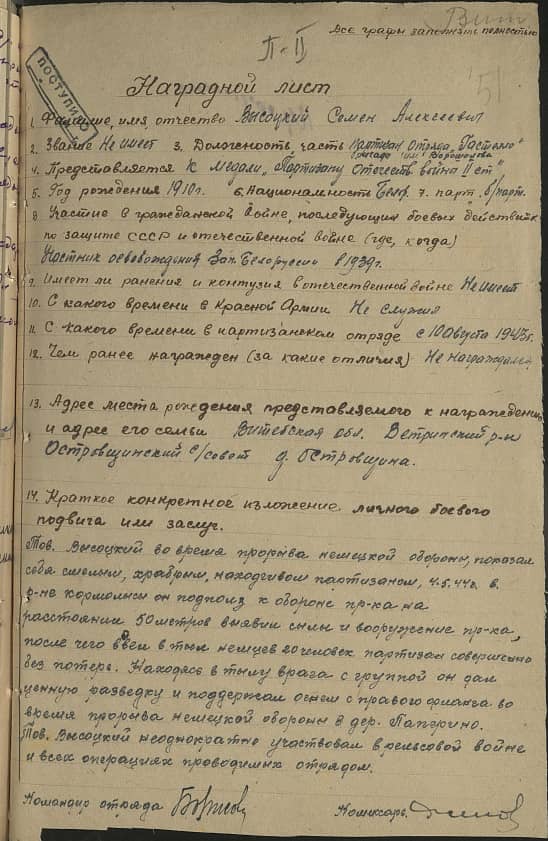 Вит
Все графы заполнять полностью
П-II
ПОСТУПИЛО
51
Наградной лист
1. Фамилие, имя, отчество Высоцкий Семен Алексеевич
2. Звание Не имеет 3. Должность, часть Партизан отряда "Гастелло"
бригада им. Ворошилова
4. Представляется к Медали "Партизану Отечеств война II ст"
5. Год рождения 1910г. 6. Национальность Бел. 7. парт. б/парт.
8. Участие в гражданской войне, последующих боевых действиях
по защите СССР и отечественной войне (где, когда)
Участник освобождения Зап. Белоруссии в 1939г.
9. Имеет ли ранения и контузия в отечественной войне Не имеет
10. С какого времени в Красной Армии Не служил
11. С какого времени в партизанском отряде с 10 августа 1943г.
12. Чем ранее награжден (за какие отличия) Не награждался
13. Адрес места рождения представляемого к награждению
и адрес его семьи Витебская обл. Ветринский р-н
Островщинский с/совет д. Островщина.
14. Краткое конкретное изложение личного боевого
подвига или заслуг.
Тов. Высоцкий во время прорыва немецкой обороны, показал
себя смелым, храбрым, находчивым партизаном, 4.5.44г. в
р-не он подполз к обороне пр-ка на
расстоянии 50 метров выявил силы и вооружение пр-ка,
после чего ввел в тыл немцев 20 человек партизан совершенно
без потерь. Находясь в тылу врага с группой он дал
ценную разведку и поддержал огнем с правого фланга во
время прорыва немецкой обороны в дер. Паперино.
Тов. Высоцкий неоднократно участвовал в рельсовой войне
и всех операциях проводимых отрядом.
Командир отряда
Комиссар